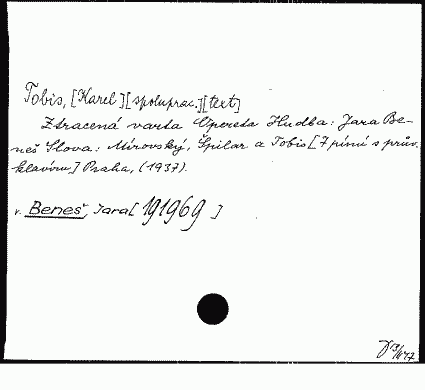 Tobis, [Karel][spoluprac.][text]
Ztracená varta Opereta Hudba: Jara Be-
neš Slova: Mírovský, Špilar a Tobis [7 písní s prův.
klavíru] Praha, (1937).
v. Beneš, Jara [191969]